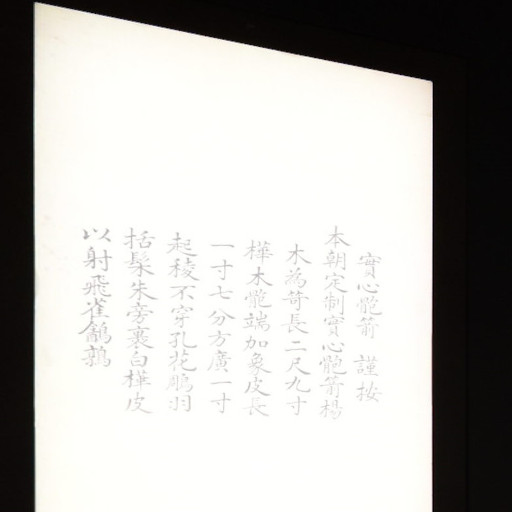 實心骲箭 謹按
本朝定制實心骲箭楊
木為笴長二尺九寸
樺木骲端加象皮長
一寸七分方廣一寸
起稜不穿孔花鵰羽
括髹朱旁裹白樺皮
以射飛雀鶺鶉